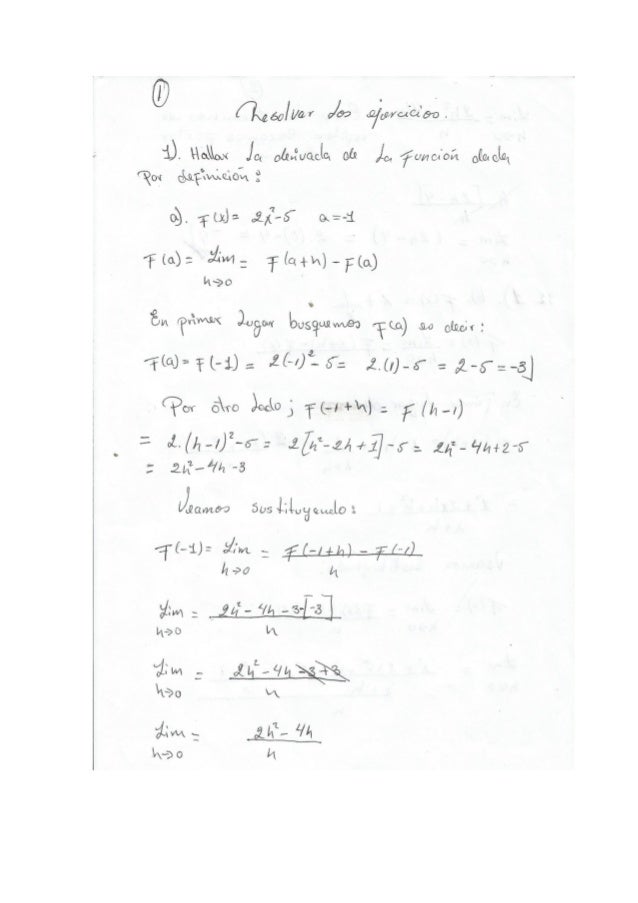 1
Resolver dos ejercicios.
1). Hallar la derivada de la Función dada,
Por definición:
a). F(x)= 2x²-5 a=-1
F(a)= Lim = F(a+h)-F(a)
h→0
En primer lugar busquemos F(a) es decir:
F(a)= F(-1)= 2(-1)²-5= 2.(1)-5 = 2-5 =-3]
Por otro lado; F(-1+h)= F(h-1)
= 2.(h-1)²-5= 2[h²-2h+1]-5= 2h²-4h+2-5
= 2h²-4h-3
Veamos sustituyendo:
F(-1)= Lim = F(-1+h)-F(-1)
h→0 h
Lim = 2h²-4h-3-[-3]
h→0 h
Lim = 2h²-4h-3+3
h→0 h
Lim = 2h²-4h
h→0 h